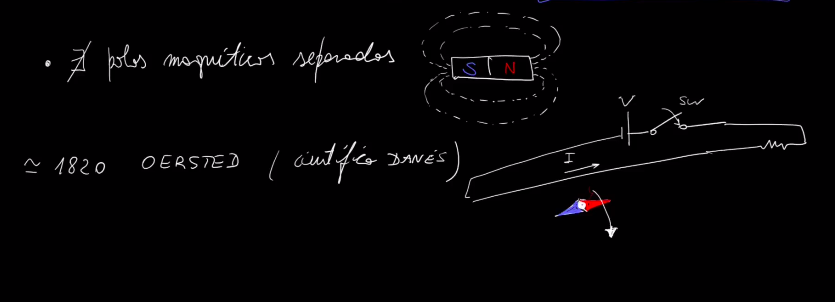 • ∄ polos magnéticos separados
S N
V SW
≃ 1820 OERSTED (científico DANÉS)
I